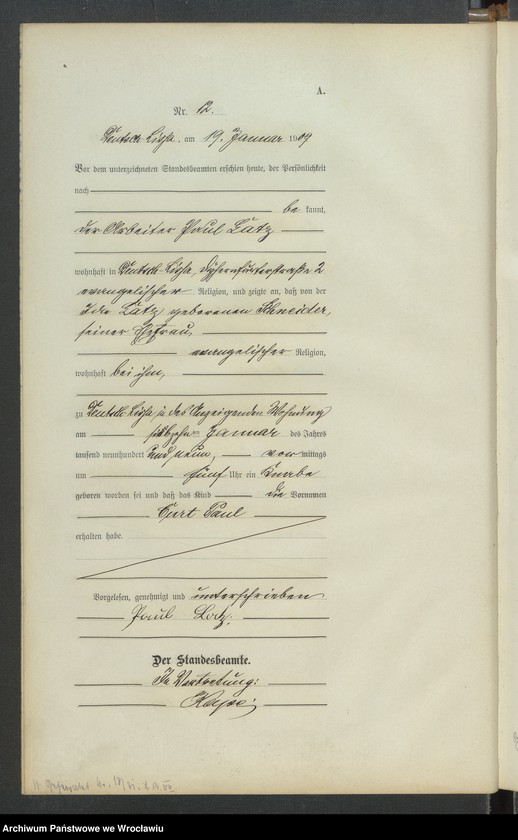 A.
Nr. 12.
Deutsch Lissa, am 19. Januar 1909
Vor dem unterzeichneten Standesbeamten erschien heute, der Persönlichkeit
nach
be kannt,
der Arbeiter Paul Latz
wohnhaft in Deutsch Lissa, Dyhernfurterstraße 2
evangelischer Religion, und zeigte an, daß von der
Ida Latz geborenen Schneider,
seiner Ehefrau,
evangelischer Religion,
wohnhaft bei ihm,
zu Deutsch Lissa, in des Anzeigenden Wohnung
am siebzehnten Januar des Jahres
tausend neunhundert und neun, vor mittags
um fünf Uhr ein Knabe
geboren worden sei und daß das Kind die Vornamen
Curt Paul
erhalten habe.
Vorgelesen, genehmigt und unterschrieben
Paul Latz.
Der Standesbeamte.
In Vertretung:
Archiwum Państwowe we Wrocławiu